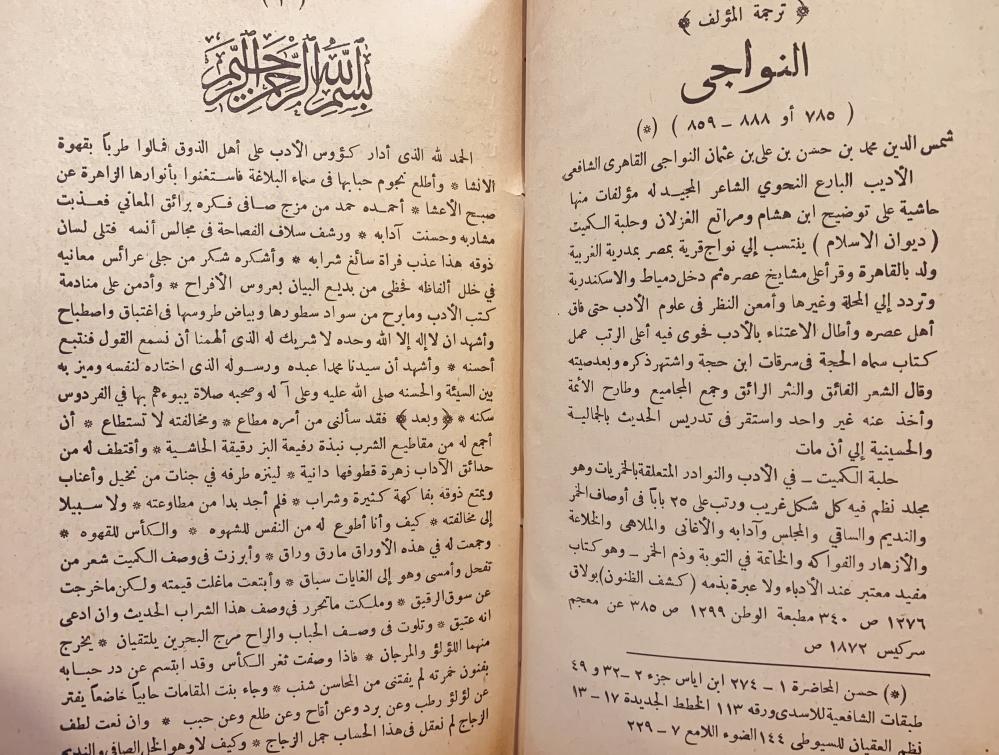 ﴿ ترجمة المؤلف ﴾
النواجى
( ٧٨٥ أو ٨٨٨ – ٨٥٩ ) (*)
شمس الدين محمد بن حسن بن على بن عثمان النواجى القاهرى الشافعى
الأديب البارع النحوي الشاعر المجيد له مؤلفات منها
حاشية على توضيح ابن هشام ومراتع الغزلان وحلبة الكميت
( ديوان الاسلام ) ينتسب إلي نواج قرية بمصر بمدرية الغربية
ولد بالقاهرة وقرأ على مشايخ عصره ثم دخل دمياط والاسكندرية
وتردد إلي المحلة وغيرها وأمعن النظر فى علوم الأدب حتى فاق
أهل عصره وأطال الاعتناء بالأدب فحوى فيه أعلى الرتب عمل
كتاب سماه الحجة فى سرقات ابن حجة واشتهر ذكره وبعد صيته
وقال الشعر الفائق والنثر الرائق وجمع المجاميع وطارح الأئمة
وأخذ عنه غير واحد واستقر فى تدريس الحديث بالجمالية
والحسينية إلي أن مات
حلبة الكميت – في الأدب والنوادر المتعلقة بالخمريات وهو
مجلد نظم فيه كل شكل غريب ورتب على ٢٥ باباً فى أوصاف الخمر
والنديم والساقي والمجلس وآدابه والأغانى والملاهى والخلاعة
والأزهار والفواكه والخاتمة في التوبة وذم الخمر – وهو كتاب
مفيد معتبر عند الأدباء ولا عبرة بذمه ( كشف الظنون) بولاق
١٢٧٦ ص ٣٤٠ مطبعة الوطن ١٢٩٩ ص ٣٨٥ عن معجم
سركيس ١٨٧٢ ص
(*) حسن المحاضرة ١ – ٢٧٤ ابن اياس جزء ٢ – ٣٢ و ٤٩
طبقات الشافعية للاسدى ورقه ١١٣ الخطط الجديدة ١٧ – ١٣
نظم العقيان للسيوطي ١٤٤ الضوء اللامع ٧ – ٢٢٩
بسم الله الرحمن الرحيم
الحمد لله الذى أدار كؤوس الأدب على أهل الذوق فمالوا طرباً بقهوة
الانشا * وأطلع نجوم حبابها فى سماء البلاغة فاستغنوا بأنوارها الزاهرة عن
صبح الأعشا * أحمده حمد من مزج صافى فكره برائق المعاني فعذبت
مشاربه وحسنت آدابه * ورشف سلاف الفصاحة فى مجالس أنسه فتلى لسان
ذوقه هذا عذب فراة سائغ شرابه * وأشكره شكر من جلى عرائس معانيه
في خلل ألفاظه فحظى من بديع البيان بعروس الأفراح * وأدمن على منادمة
كتب الأدب ومابرح من سواد سطورها وبياض طروسها فى اغتباق واصطباح
وأشهد ان لاإله إلا الله وحده لا شريك له الذى ألهمنا أن نسمع القول فنتبع
أحسنه * وأشهد أن سيدنا محمدا عبده ورسوله الذى اختاره لنفسه وميز به
بين السيئة والحسنه صلى الله عليه وعلى آله وصحبه صلاة يبوءهم بها فى الفردوس
سكنه * ﴿ وبعد ﴾ فقد سألنى من أمره مطاع * ومخالفته لا تستطاع * أن
أجمع له من مقاطيع الشرب نبذة رفيعة البز رقيقة الحاشية * وأقتطف له من
حدائق الآداب زهرة قطوفها دانية * لينزه طرفه في جنات من نخيل وأعناب
ويمتع ذوقه بفاكهة كثيرة وشراب * فلم أجد بدا من مطاوعته * ولا سبيلا
إلى مخالفته * كيف وأنا أطوع له من النفس للشهوه * والكأس للقهوه *
وجمعت له في هذه الأوراق مارق وراق * وأبرزت فى وصف الكميت شعر من
تفحل وأمسى وهو إلى الغايات سباق * وأبتعت ماغلت قيمته ولكن ماخرجت
عن سوق الرقيق * وملكت ماتحرر فى وصف هذا الشراب الحديث وان ادعى
انه عتيق * وتلوت فى وصف الحباب والراح مرج البحرين يلتقيان * يخرج
منهما اللؤلؤ والمرجان * فاذا وصفت ثغر الكأس وقد ابتسم عن در حبابه
بفنون خمرته لم يفتنى من المحاسن شنب * وجاء بنت المقامات حابياً خاضعاً يفتر
عن لؤلؤ رطب وعن برد وعن أقاح وعن طلع وعن حبب * وان نعت لطف
الزجاج لم نعقل فى هذا الحساب حمل الزجاج * وكيف لا وهو الخل الصافى والنديم